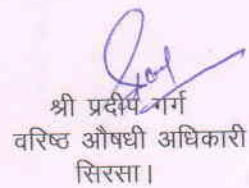 श्री प्रदीप गर्ग
वरिष्ठ औषधी अधिकारी
सिरसा।